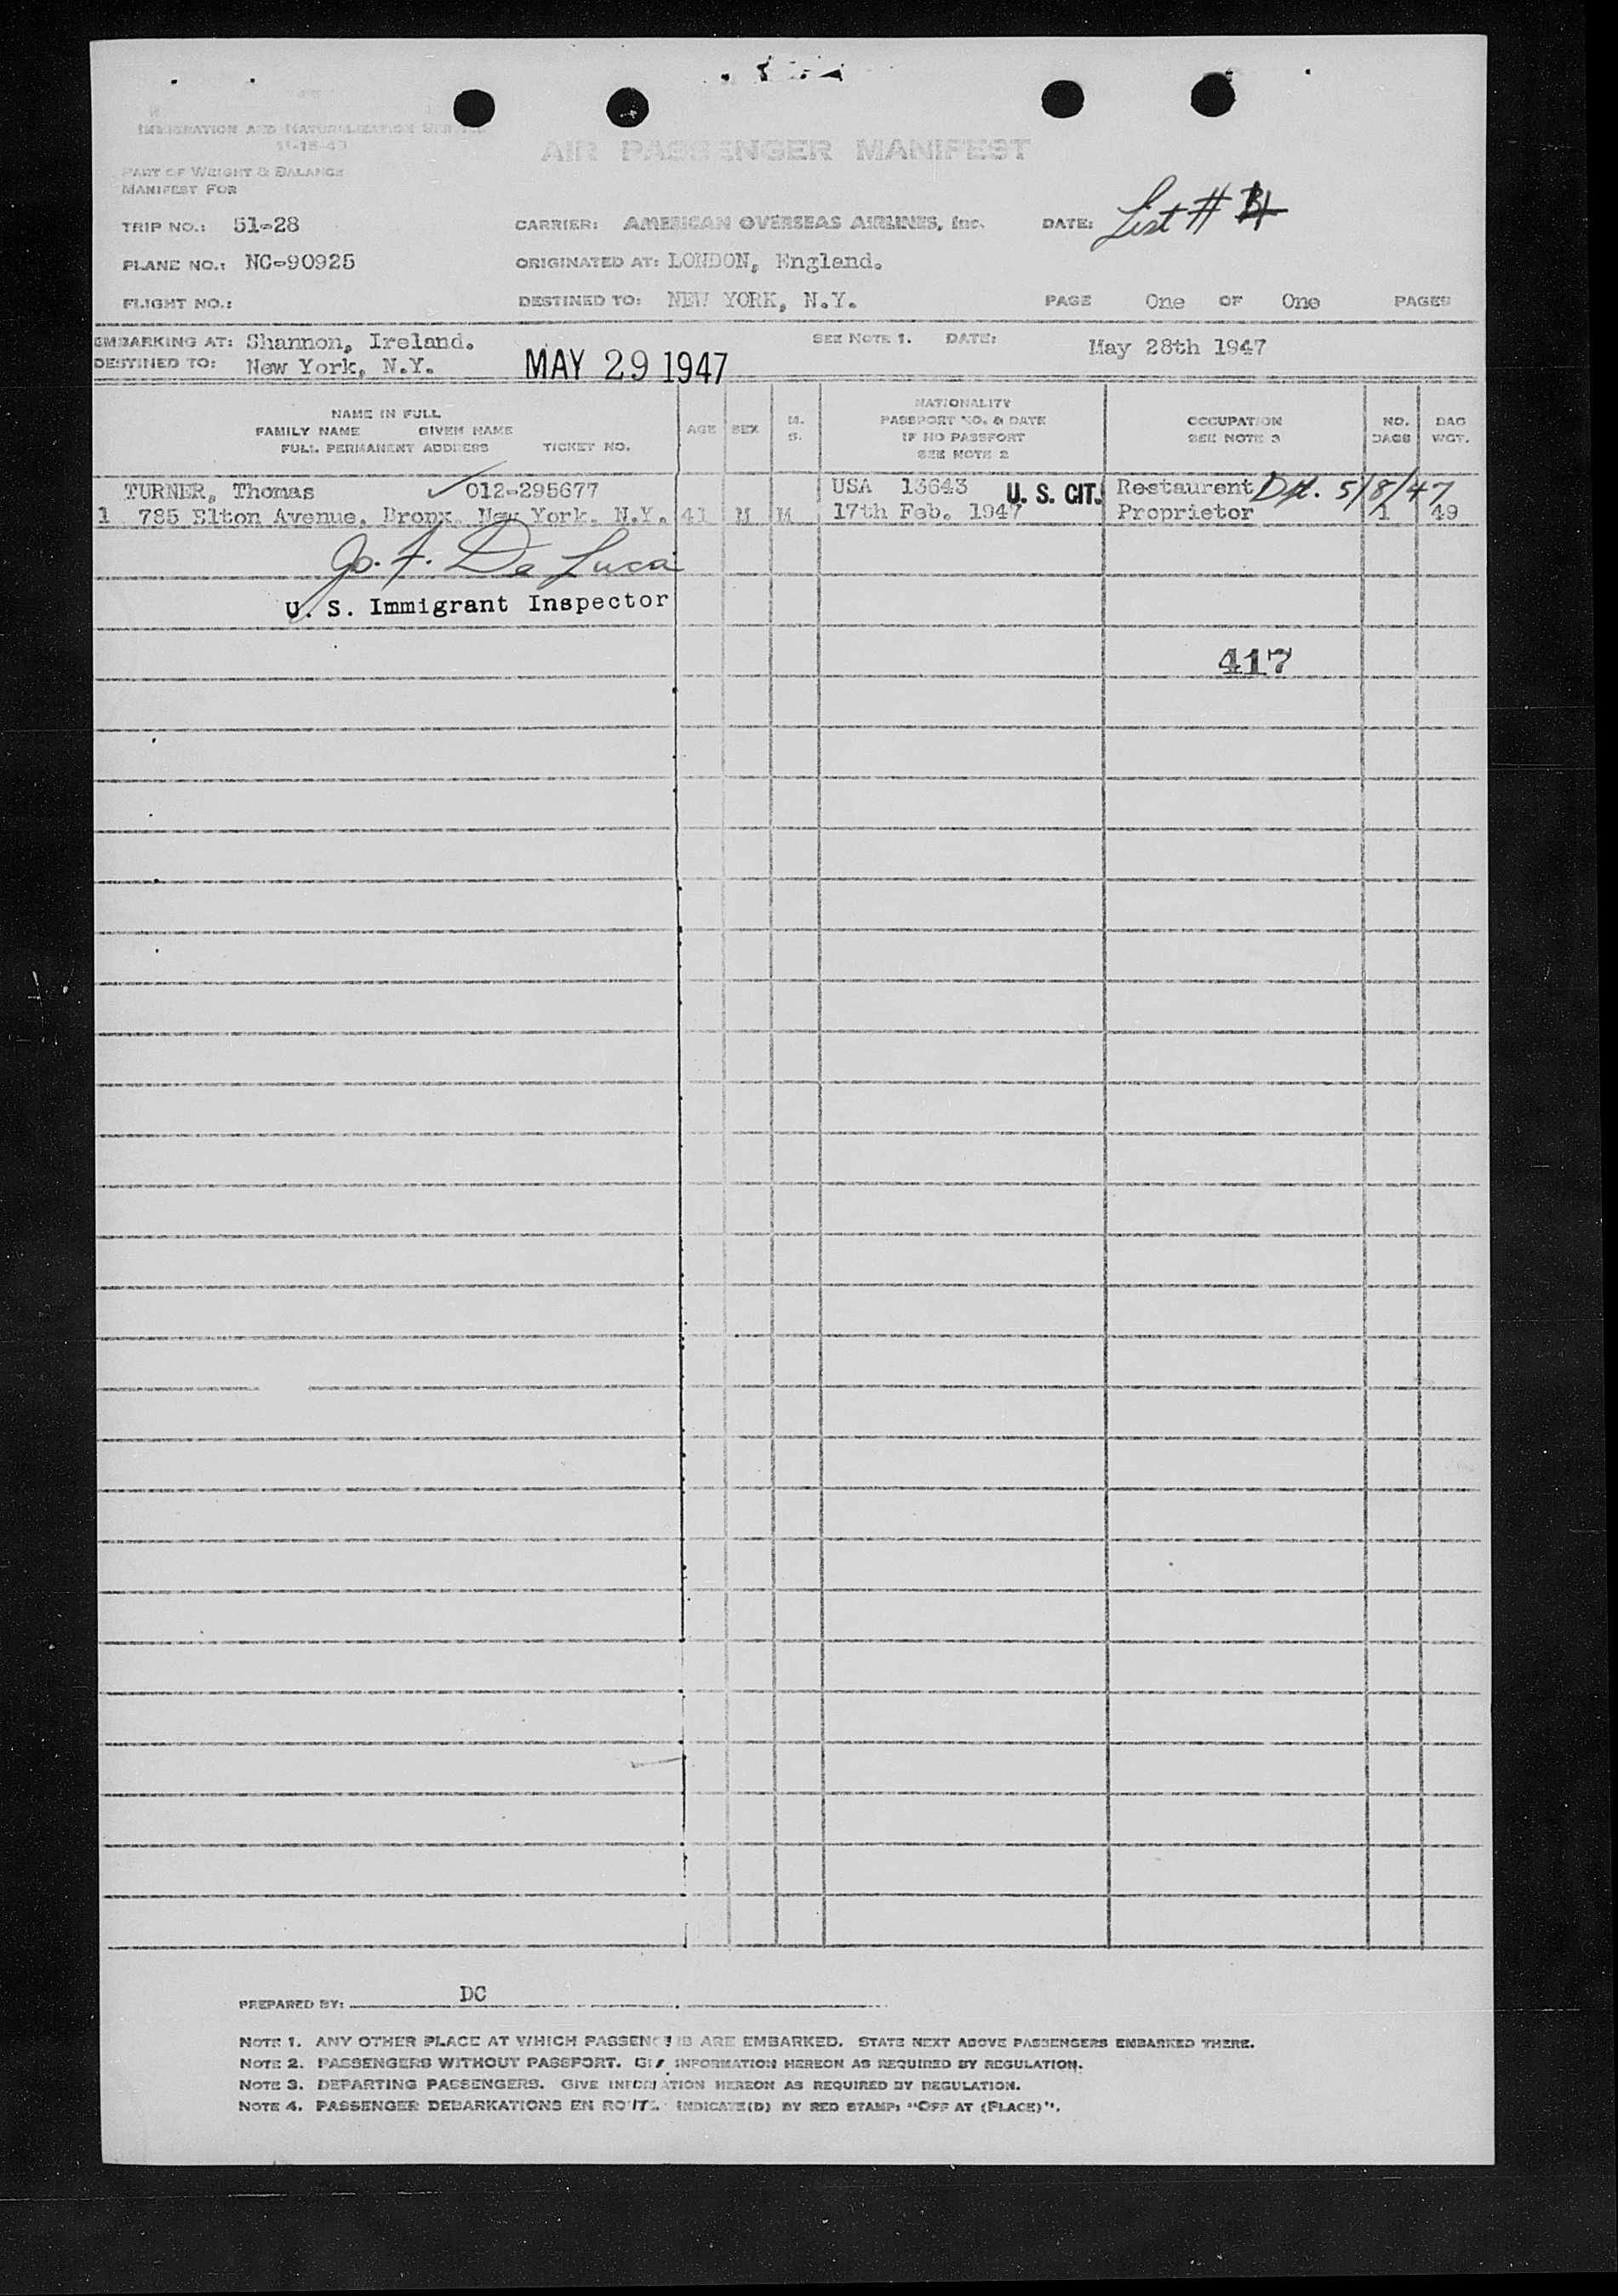 IMMIGRATION AND NATURALIZATION SERVICE
11-15-43
AIR PASSENGER MANIFEST
PART OF WEIGHT & BALANCE
MANIFEST FOR
TRIP NO.: 51-28 CARRIER: AMERICAN OVERSEAS AIRLINES, Inc. DATE: List #
PLANE NO.: NC-90925 ORIGINATED AT: LONDON, England.
FLIGHT NO.: DESTINED TO: NEW YORK, N.Y. PAGE One OF One PAGES
EMBARKING AT: Shannon, Ireland. SEE NOTE 1. DATE: May 28th 1947
DESTINED TO: New York, N.Y. MAY 29 1947
NAME IN FULL
FAMILY NAME GIVEN NAME
FULL PERMANENT ADDRESS TICKET NO.
AGE SEX M. S.
NATIONALITY
PASSPORT NO. & DATE
IF NO PASSPORT
SEE NOTE 2
OCCUPATION
SEE NOTE 3
NO. BAGS
BAG WGT.
TURNER, Thomas 012-295677 USA 13643 U. S. CIT. Restaurent 5/8/47
1 785 Elton Avenue, Bronx, New York, N.Y. 41 M M 17th Feb. 1947 Proprietor 1 49
Jo. F. De Luca
U. S. Immigrant Inspector
417
PREPARED BY: DC
NOTE 1. ANY OTHER PLACE AT WHICH PASSENGERS ARE EMBARKED. STATE NEXT ABOVE PASSENGERS EMBARKED THERE.
NOTE 2. PASSENGERS WITHOUT PASSPORT. GIVE INFORMATION HEREON AS REQUIRED BY REGULATION.
NOTE 3. DEPARTING PASSENGERS. GIVE INFORMATION HEREON AS REQUIRED BY REGULATION.
NOTE 4. PASSENGER DEBARKATIONS EN ROUTE. INDICATE(D) BY RED STAMP: "OFF AT (PLACE)".